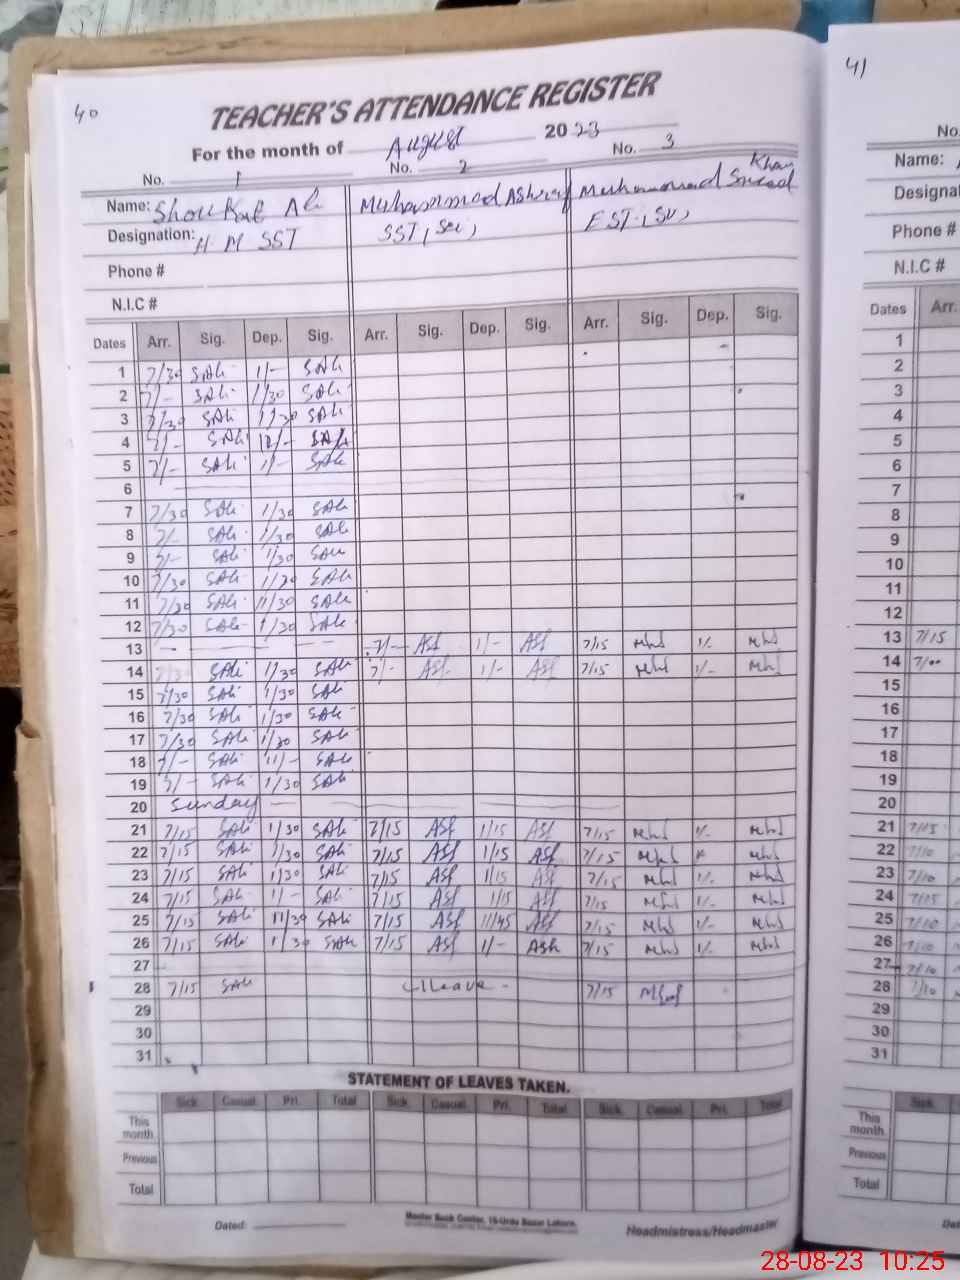 40
TEACHER'S ATTENDANCE REGISTER
For the month of August 2023
No. 1 No. 2 No. 3
Name: Shoukat Ali Muhammad Ashraf Muhammad Khan
Designation: H M SST SST, EST,
Phone #
N.I.C #
Dates Arr. Sig. Dep. Sig. Arr. Sig. Dep. Sig. Arr. Sig. Dep. Sig.
1 7/30 SAli 1/- SAli
2 7/- SAli 1/30 SAli
3 7/30 SAli 1/30 SAli
4 7/- SAli 11/- SAli
5 7/- SAli 1/- SAli
6
7 7/30 SAli 1/30 SAli
8 7/- SAli 1/30 SAli
9 7/- SAli 1/30 SAli
10 7/30 SAli 1/30 SAli
11 7/30 SAli 11/30 SAli
12 7/30 SAli 1/30 SAli
13 7/- Asf 1/- Asf 7/15 1/-
14 7/30 SAli 1/30 SAli 7/- Asf 1/- Asf 7/15 1/-
15 7/30 SAli 1/30 SAli
16 7/30 SAli 1/30 SAli
17 7/30 SAli 1/30 SAli
18 7/- SAli 11/- SAli
19 7/- SAli 1/30 SAli
20 Sunday
21 7/15 SAli 1/30 SAli 7/15 Asf 1/15 Asf 7/15 1/-
22 7/15 SAli 1/30 SAli 7/15 Asf 1/15 Asf 7/15
23 7/15 SAli 1/30 SAli 7/15 Asf 1/15 Asf 7/15 1/-
24 7/15 SAli 1/- SAli 7/15 Asf 1/15 Asf 7/15 1/-
25 7/15 SAli 11/30 SAli 7/15 Asf 11/45 Asf 7/15 1/-
26 7/15 SAli 1/30 SAli 7/15 Asf 1/- Ash 7/15 1/-
27
28 7/15 SAli leave 7/15
29
30
31
STATEMENT OF LEAVES TAKEN.
Sick. Casual. Pri. Total Sick. Casual. Pri. Total Sick. Casual. Pri. Total
This month.
Previous
Total
Dated:
Master Book Center, 16-Urdu Bazar Lahore.
Headmistress/Headmaster
41
No.
Name:
Phone #
N.I.C #
Dates Arr.
1
2
3
4
5
6
7
8
9
10
11
12
13 7/15
14 7/00
15
16
17
18
19
20
21 7/15
22 7/10
23 7/10
24 7/15
25 7/10
26 7/10
27 7/10
28 7/10
29
30
31
Sick
This month.
Previous
Total
28-08-23 10:25